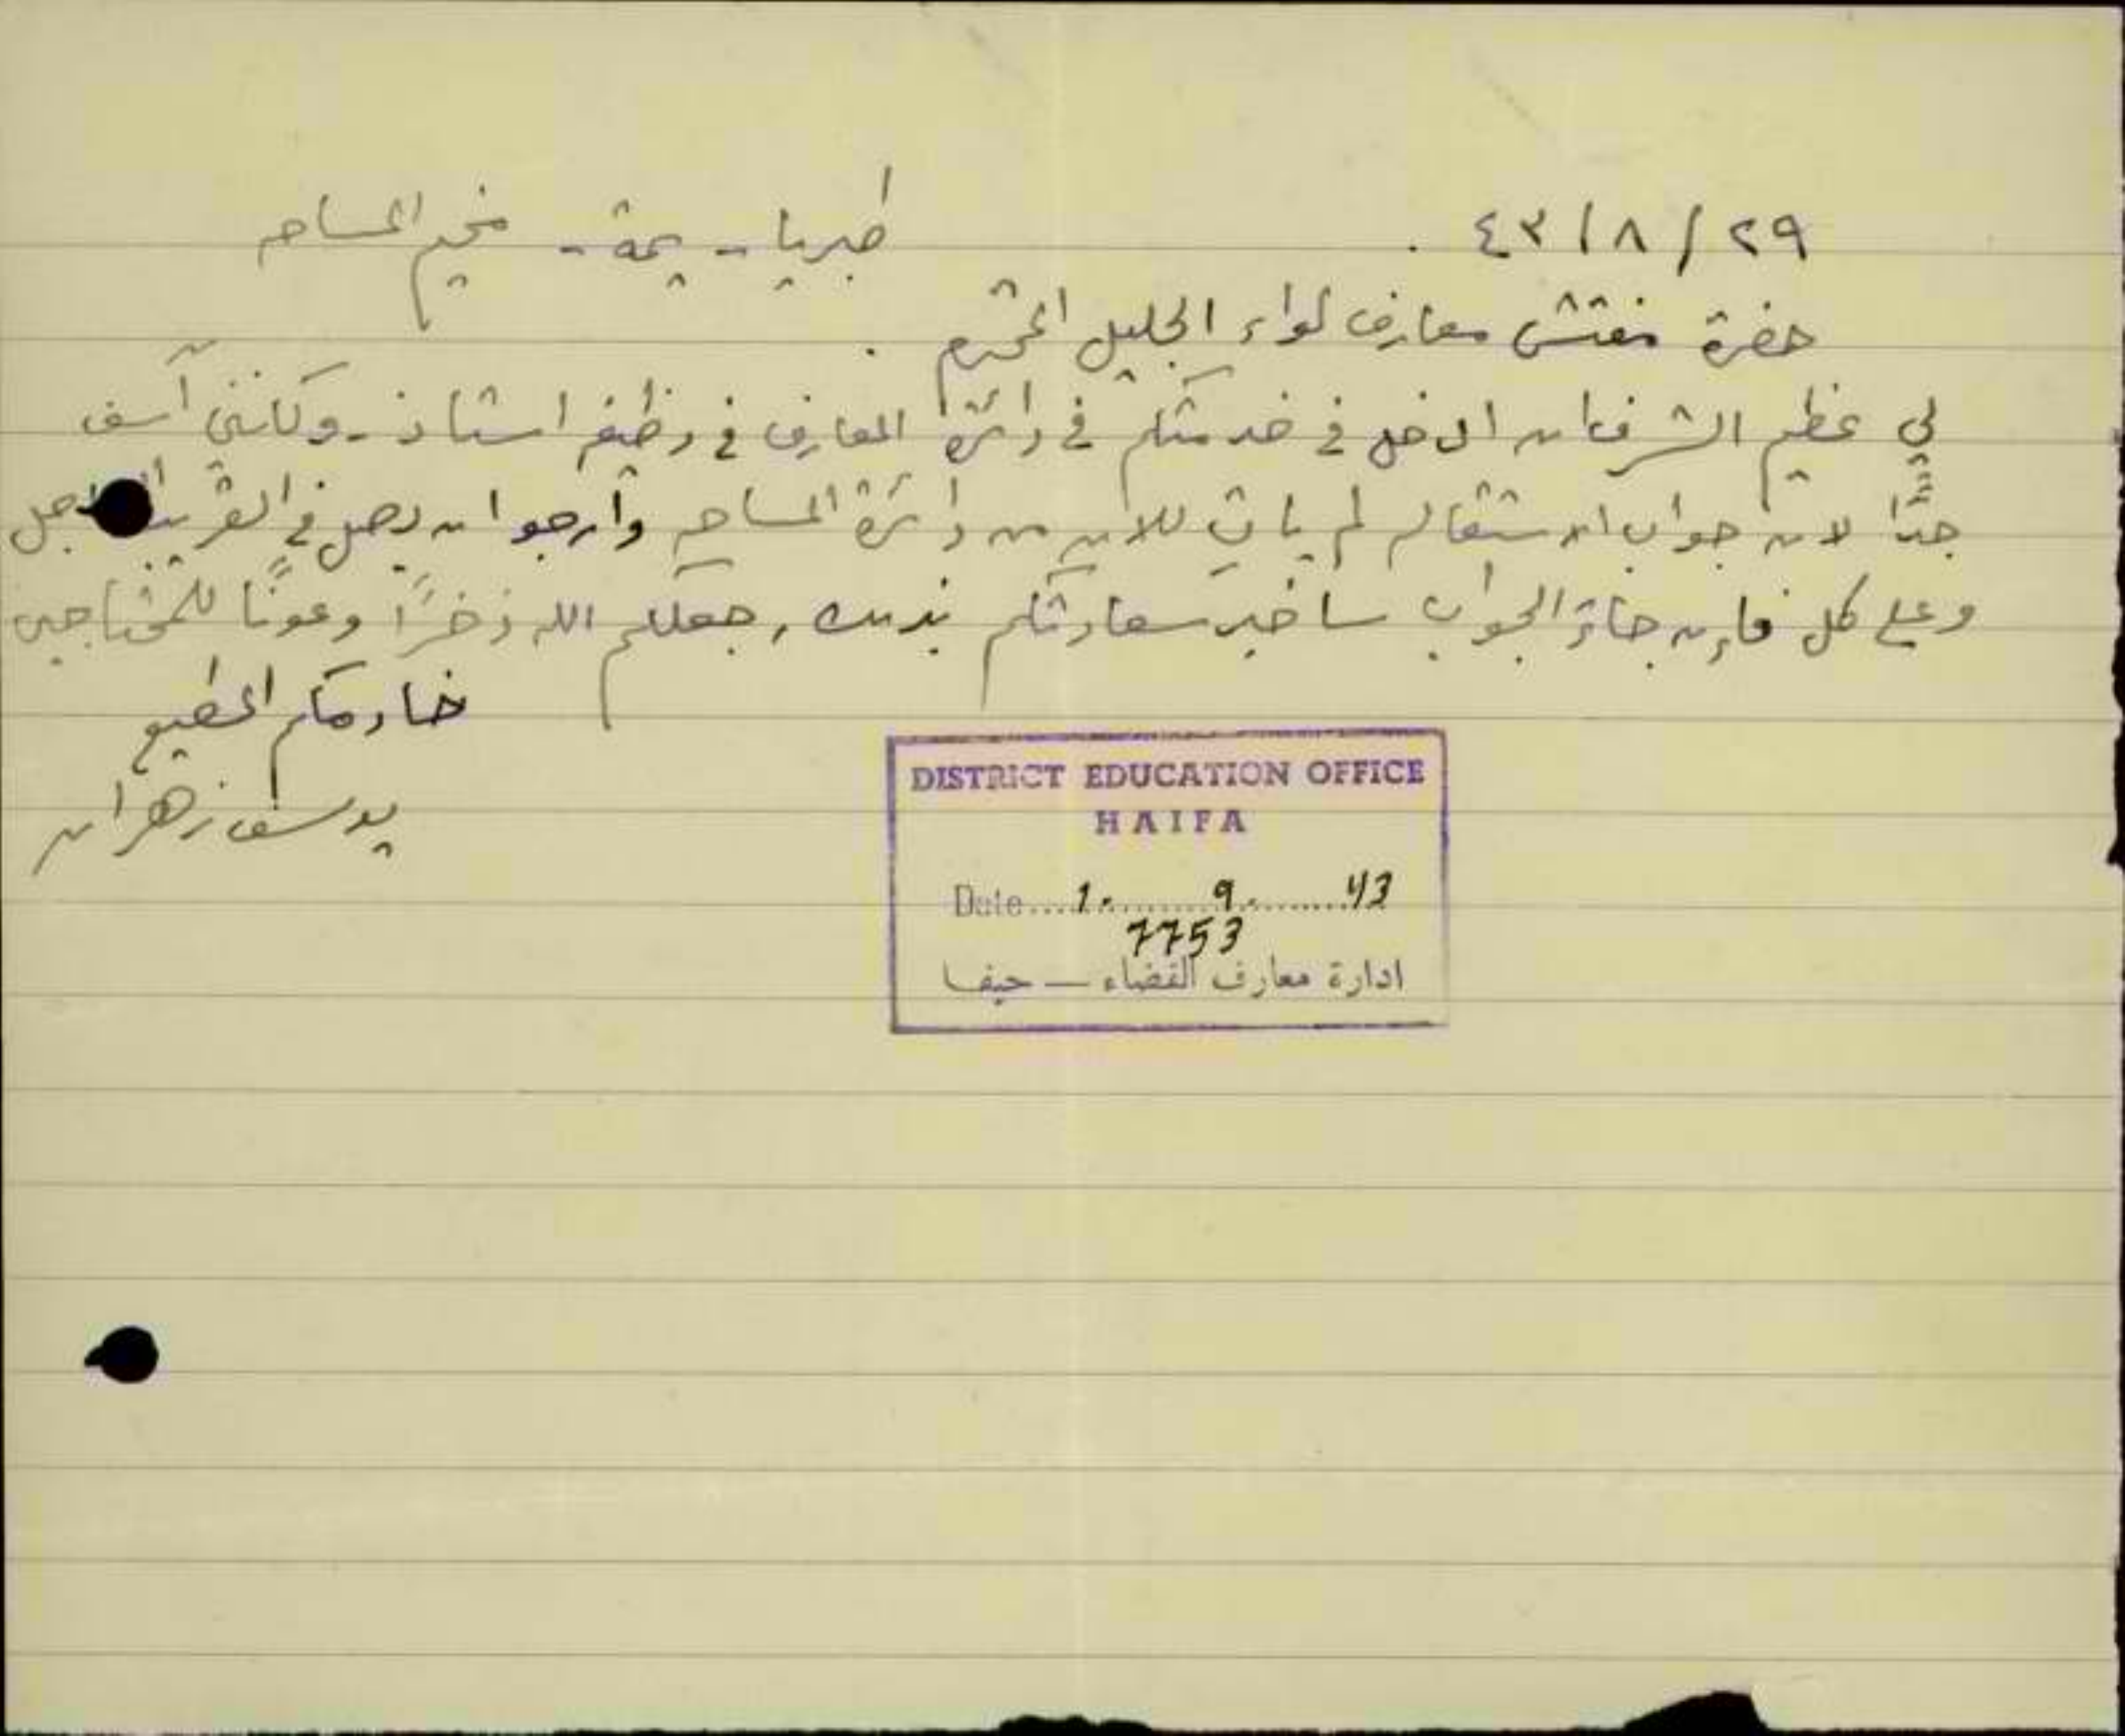 ٢٩/٨/٤٣ .
طبريا - يمة - مخيم المساحه
حضرة مفتش معارف لواء الجليل المحترم .
لي عظيم الشرف ان ادخل في خدمتكم في دائرة المعارف في وظيفه استاذ - ولكنني آسف
جدًّا لان جواب الاستقاله لم يات للان من دائرة المساحه وأرجو ان يصل في القريب العاجل
وعلى كل فإن جاءَ الجواب ساخبر سعادتكم بذلك ، جعلكم الله ذخرًا وعونًا للمحتاجين
خادمكم المطيع
يوسف زهران
DISTRICT EDUCATION OFFICE
HAIFA
Date....1.........9.........43
7753
ادارة معارف القضاء — حيفا